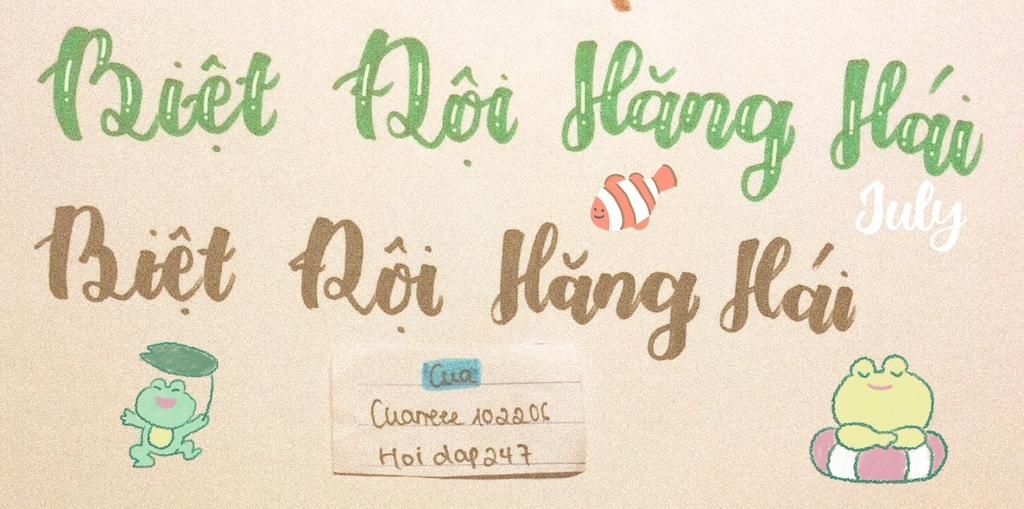 Biệt Đội Hăng Hái
July
Biệt Đội Hăng Hái
Cua
Cuarece 102206
Hoi dap247